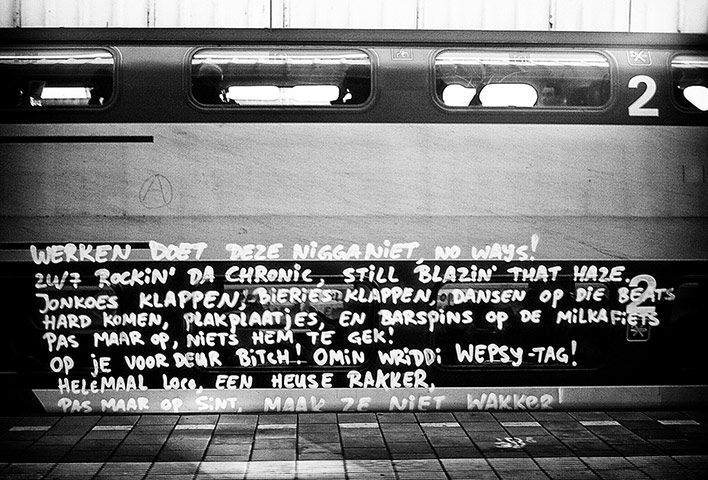 2
WERKEN DOET DEZE NIGGA NIET, NO WAYS!
24/7 ROCKIN' DA CHRONIC, STILL BLAZIN' THAT HAZE.
JONKOES KLAPPEN, BIERIES KLAPPEN, DANSEN OP DIE BEATS
HARD KOMEN, PLAKPLAATJES, EN BARSPINS OP DE MILKAFIETS
PAS MAAR OP, NIETS HEM TE GEK!
OP JE VOORDEUR BITCH! OMIN WRIDDI WEPSY-TAG!
HELEMAAL LOCO, EEN HEUSE RAKKER,
PAS MAAR OP SINT, MAAK ZE NIET WAKKER
2
A